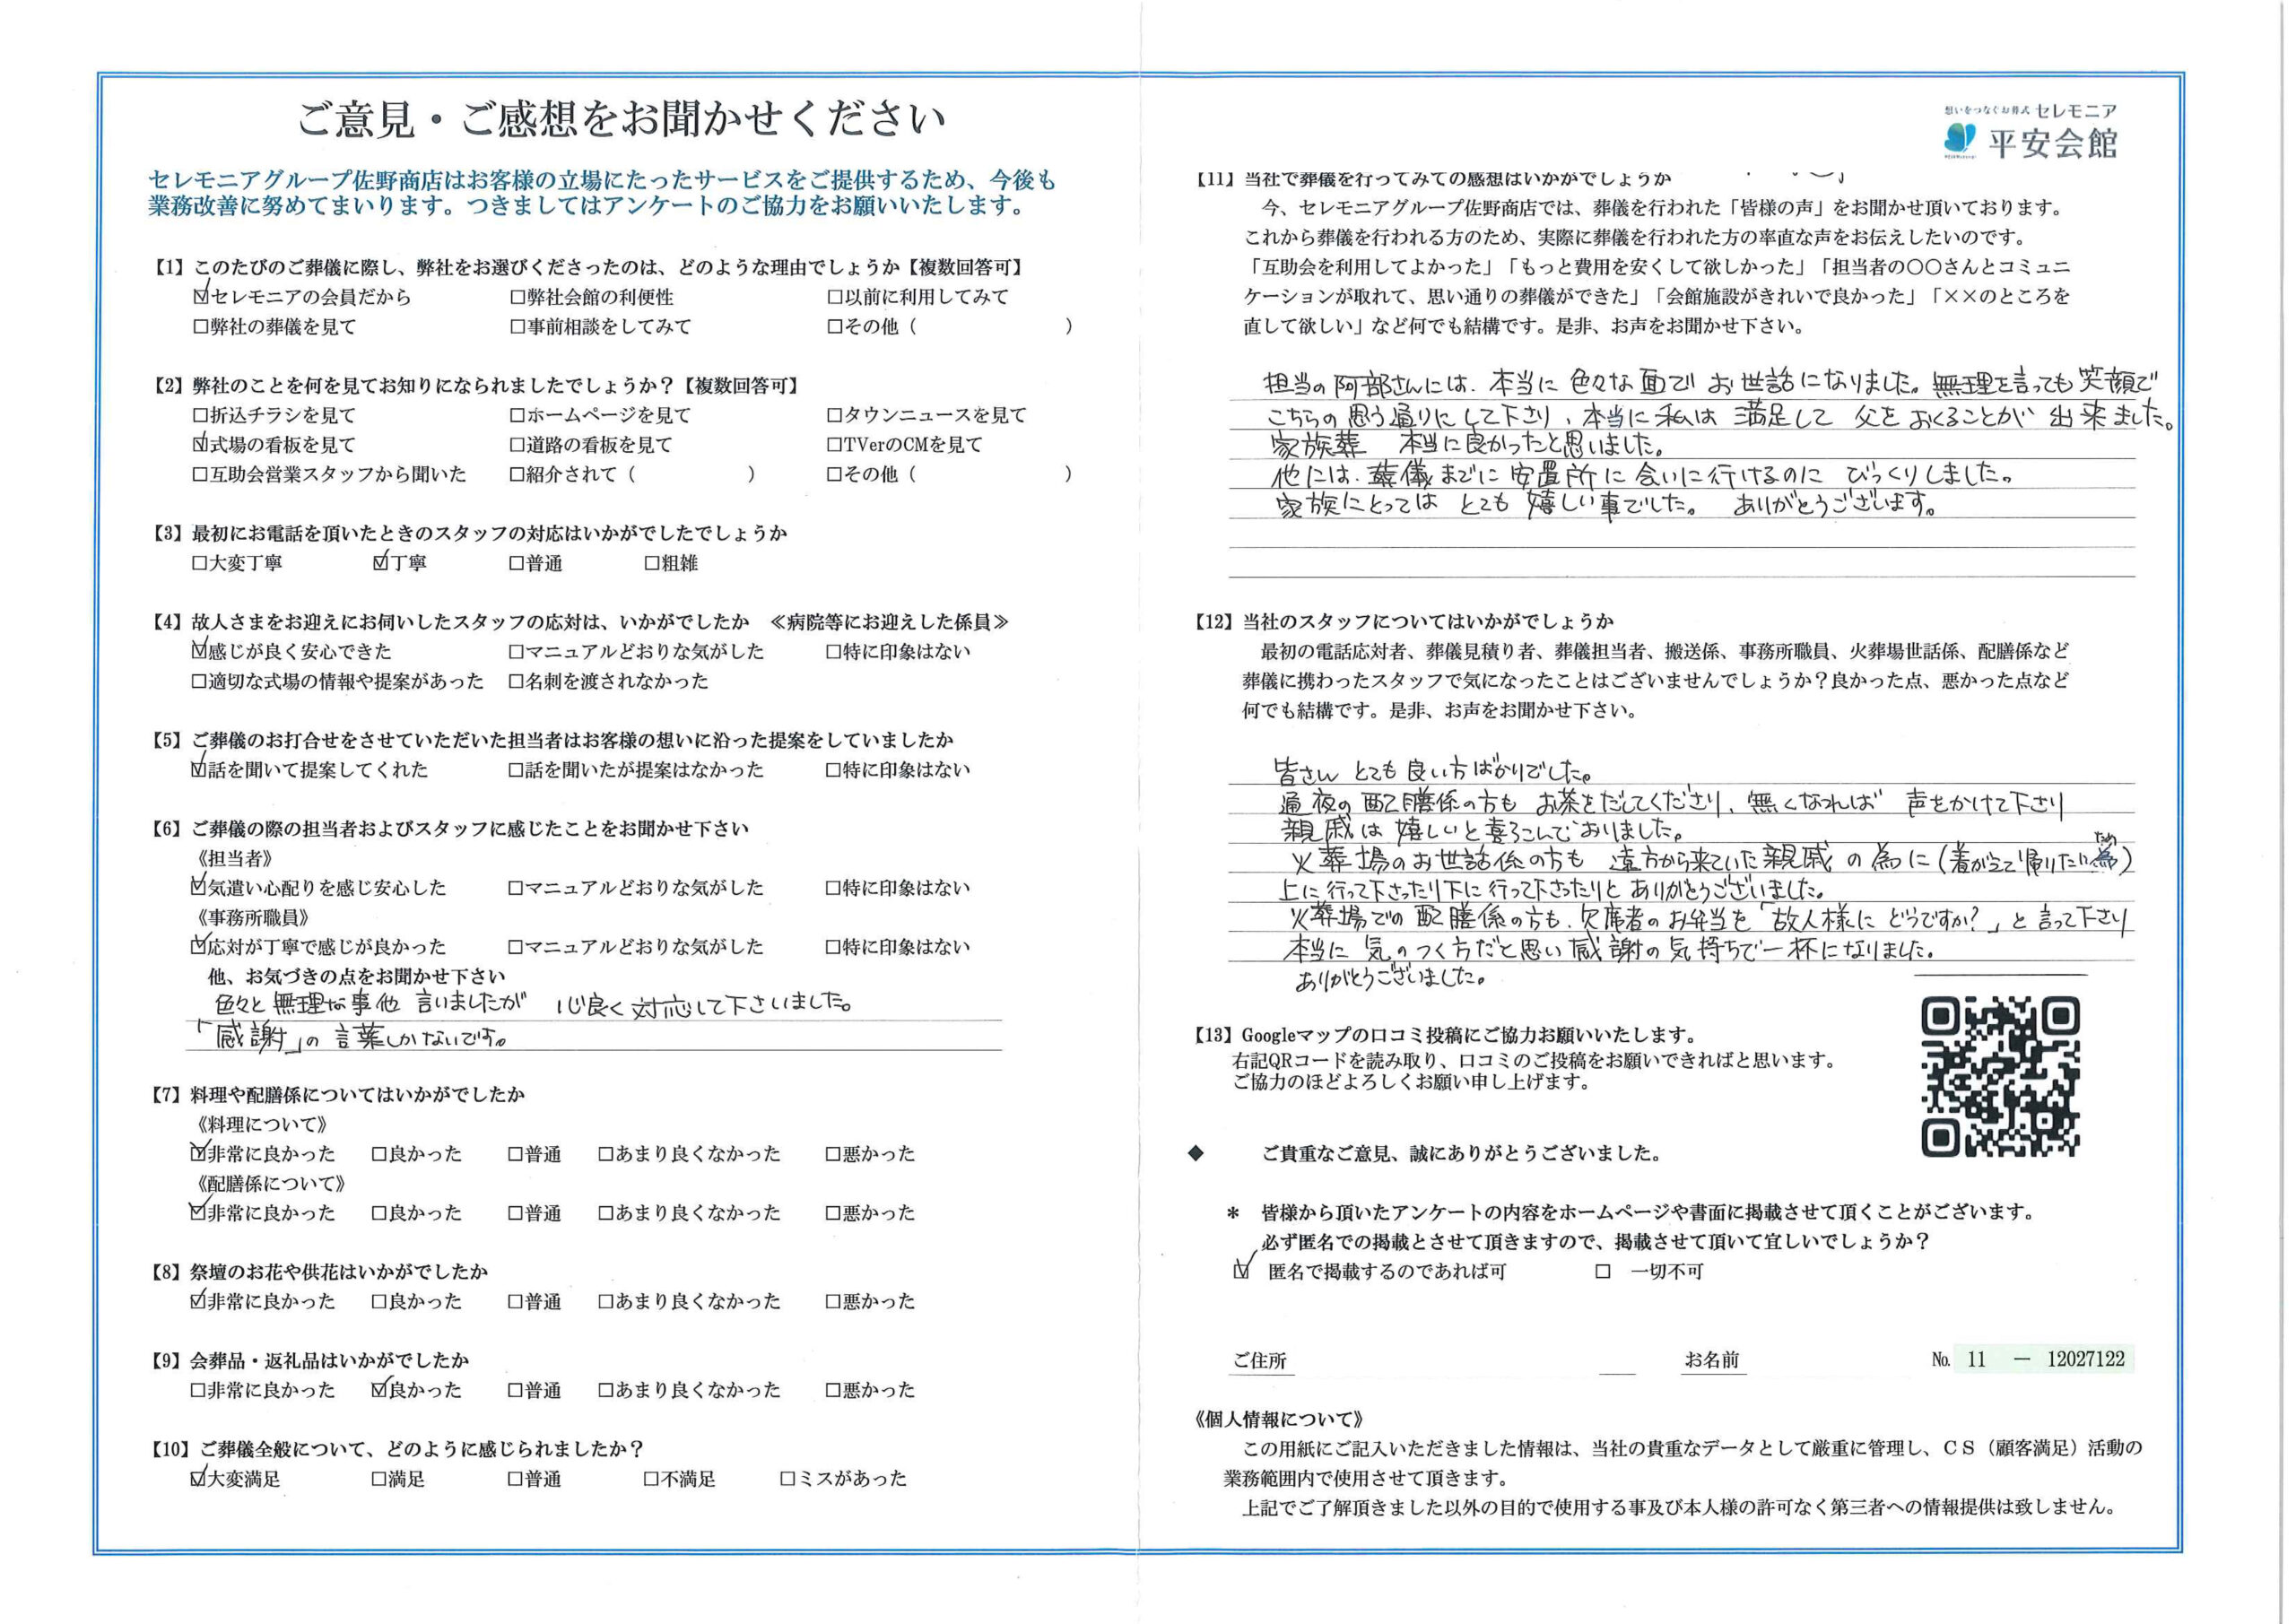 ご意見・ご感想をお聞かせください
セレモニアグループ佐野商店はお客様の立場にたったサービスをご提供するため、今後も
業務改善に努めてまいります。つきましてはアンケートのご協力をお願いいたします。
【1】このたびのご葬儀に際し、弊社をお選びくださったのは、どのような理由でしょうか【複数回答可】
☑セレモニアの会員だから □弊社会館の利便性 □以前に利用してみて
□弊社の葬儀を見て □事前相談をしてみて □その他（ ）
【2】弊社のことを何を見てお知りになられましたでしょうか？【複数回答可】
□折込チラシを見て □ホームページを見て □タウンニュースを見て
☑式場の看板を見て □道路の看板を見て □TVerのCMを見て
□互助会営業スタッフから聞いた □紹介されて（ ） □その他（ ）
【3】最初にお電話を頂いたときのスタッフの対応はいかがでしたでしょうか
□大変丁寧 ☑丁寧 □普通 □粗雑
【4】故人さまをお迎えにお伺いしたスタッフの応対は、いかがでしたか ≪病院等にお迎えした係員≫
☑感じが良く安心できた □マニュアルどおりな気がした □特に印象はない
□適切な式場の情報や提案があった □名刺を渡されなかった
【5】ご葬儀のお打合せをさせていただいた担当者はお客様の想いに沿った提案をしていましたか
☑話を聞いて提案してくれた □話を聞いたが提案はなかった □特に印象はない
【6】ご葬儀の際の担当者およびスタッフに感じたことをお聞かせ下さい
《担当者》
☑気遣い心配りを感じ安心した □マニュアルどおりな気がした □特に印象はない
《事務所職員》
☑応対が丁寧で感じが良かった □マニュアルどおりな気がした □特に印象はない
他、お気づきの点をお聞かせ下さい
色々と無理な事他 言いましたが 心良く対応して下さいました。
「感謝」の言葉しかないです。
【7】料理や配膳係についてはいかがでしたか
《料理について》
☑非常に良かった □良かった □普通 □あまり良くなかった □悪かった
《配膳係について》
☑非常に良かった □良かった □普通 □あまり良くなかった □悪かった
【8】祭壇のお花や供花はいかがでしたか
☑非常に良かった □良かった □普通 □あまり良くなかった □悪かった
【9】会葬品・返礼品はいかがでしたか
□非常に良かった ☑良かった □普通 □あまり良くなかった □悪かった
【10】ご葬儀全般について、どのように感じられましたか？
☑大変満足 □満足 □普通 □不満足 □ミスがあった
想いをつなぐお葬式 セレモニア
平安会館
【11】当社で葬儀を行ってみての感想はいかがでしょうか
今、セレモニアグループ佐野商店では、葬儀を行われた「皆様の声」をお聞かせ頂いております。
これから葬儀を行われる方のため、実際に葬儀を行われた方の率直な声をお伝えしたいのです。
「互助会を利用してよかった」「もっと費用を安くして欲しかった」「担当者の〇〇さんとコミュニ
ケーションが取れて、思い通りの葬儀ができた」「会館施設がきれいで良かった」「××のところを
直して欲しい」など何でも結構です。是非、お声をお聞かせ下さい。
担当の阿部さんには、本当に色々な面でお世話になりました。無理を言っても笑顔で
こちらの思う通りにして下さり、本当に私は満足して父をおくることが出来ました。
家族葬 本当に良かったと思いました。
他には、葬儀までに安置所に会いに行けるのに びっくりしました。
家族にとっては とても嬉しい事でした。 ありがとうございます。
【12】当社のスタッフについてはいかがでしょうか
最初の電話応対者、葬儀見積り者、葬儀担当者、搬送係、事務所職員、火葬場世話係、配膳係など
葬儀に携わったスタッフで気になったことはございませんでしょうか？良かった点、悪かった点など
何でも結構です。是非、お声をお聞かせ下さい。
皆さん とても良い方ばかりでした。
通夜の配膳係の方も お茶をだしてくださり、無くなれば 声をかけて下さり
親戚は嬉しいと喜ろこんでおりました。
火葬場のお世話係の方も 遠方から来ていた親戚の為に（着がえて帰りたい為）
上に行って下さったり下に行って下さったりと ありがとうございました。
火葬場での配膳係の方も、欠席者のお弁当を「故人様に どうですか？」と言って下さり
本当に 気のつく方だと思い 感謝の気持ちで一杯になりました。
ありがとうございました。
【13】Googleマップの口コミ投稿にご協力お願いいたします。
右記QRコードを読み取り、口コミのご投稿をお願いできればと思います。
ご協力のほどよろしくお願い申し上げます。
◆ ご貴重なご意見、誠にありがとうございました。
＊ 皆様から頂いたアンケートの内容をホームページや書面に掲載させて頂くことがございます。
必ず匿名での掲載とさせて頂きますので、掲載させて頂いて宜しいでしょうか？
☑ 匿名で掲載するのであれば可 □ 一切不可
ご住所 お名前 No. 11 － 12027122
《個人情報について》
この用紙にご記入いただきました情報は、当社の貴重なデータとして厳重に管理し、ＣＳ（顧客満足）活動の
業務範囲内で使用させて頂きます。
上記でご了解頂きました以外の目的で使用する事及び本人様の許可なく第三者への情報提供は致しません。